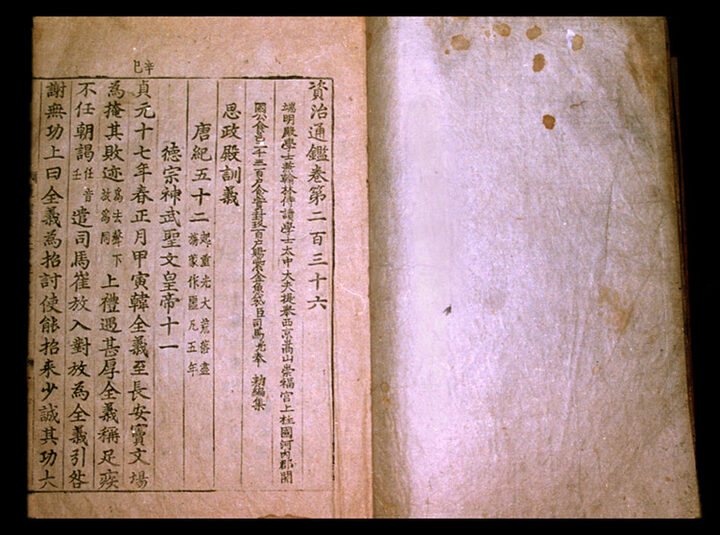 資治通鑑卷第二百三十六
端明殿學士兼翰林侍讀學士太中大夫提舉西京嵩山崇福宮上柱國河內郡開
國公食邑二千三百户食實封玖百户賜紫金魚袋臣司馬光奉 勑編集
思政殿訓義
唐紀五十二 起重光大荒落盡旃蒙作噩凡五年
德宗神武聖文皇帝十一
辛巳
貞元十七年春正月甲寅韓全義至長安竇文場
為掩其敗迹 為去聲下故為同 上禮遇甚厚全義稱足疾
不任朝謁 任音壬 遣司馬崔放入對放為全義引咎
謝無功上曰全義為招討使能招来少誠其功大